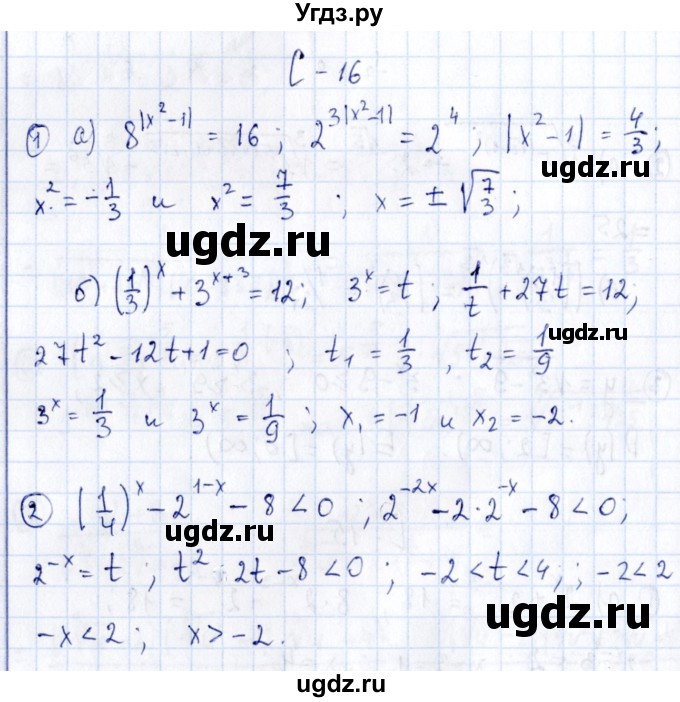 Угдз.ру
С - 16
① а) 8^{|x²-1|} = 16 ; 2^{3|x²-1|} = 2⁴ ; |x²-1| = 4/3 ;
x² = -1/3 и x² = 7/3 ; x = ± √(7/3) ;
ugdz.ru
ugdz.ru
б) (1/3)^x + 3^{x+3} = 12 ; 3^x = t ; 1/t + 27t = 12 ;
ugdz.ru
27t² - 12t + 1 = 0 ; t₁ = 1/3 , t₂ = 1/9
3^x = 1/3 и 3^x = 1/9 ; x₁ = -1 и x₂ = -2.
② (1/4)^x - 2^{1-x} - 8 < 0 ; 2^{-2x} - 2·2^{-x} - 8 < 0 ;
ugdz.ru
2^{-x} = t ; t² 2t - 8 < 0 ; -2 < t < 4 ; ; -2 < 2
ugdz.ru
-x < 2 ; x > -2.
ugdz.ru